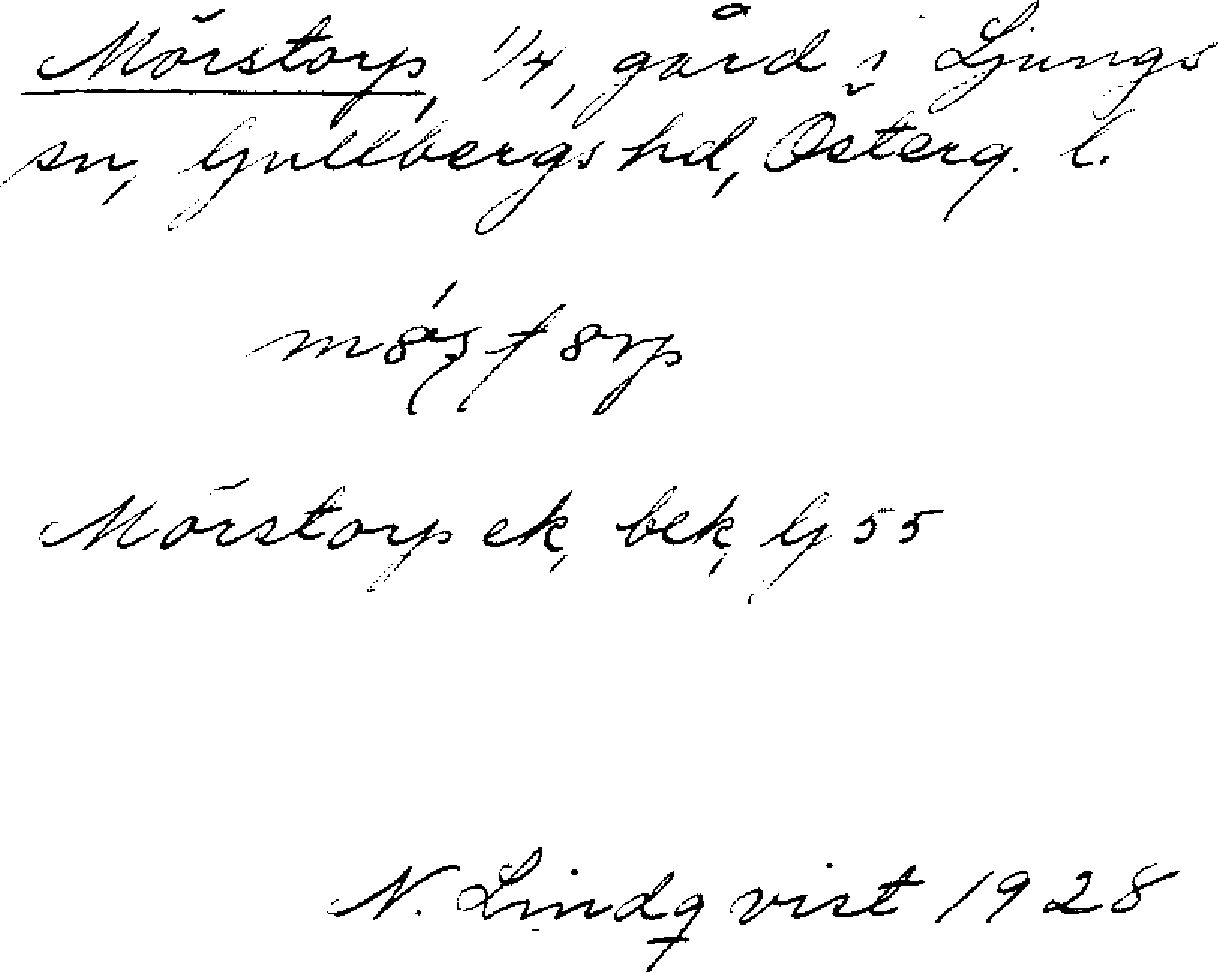 Mörstorp, 1/4, gård i Ljungs
sn, Gullbergs hd, Österg. l.
Mörstorp ek, bek, G 55
N. Lindqvist 1928